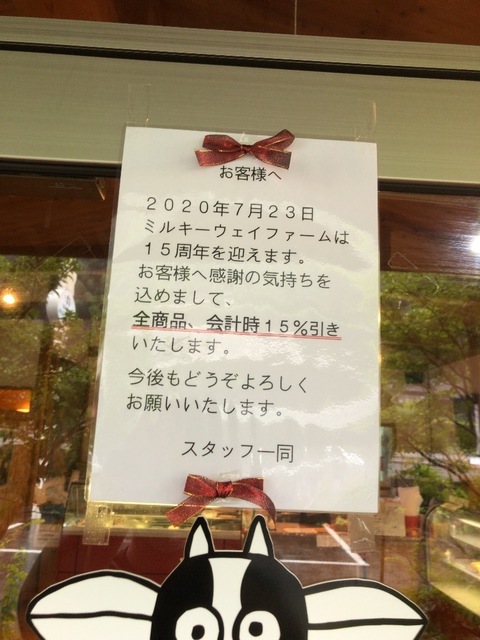 お客様へ
２０２０年７月２３日
ミルキーウェイファームは
１５周年を迎えます。
お客様へ感謝の気持ちを
込めまして、
全商品、会計時１５％引き
いたします。
今後もどうぞよろしく
お願いいたします。
スタッフ一同